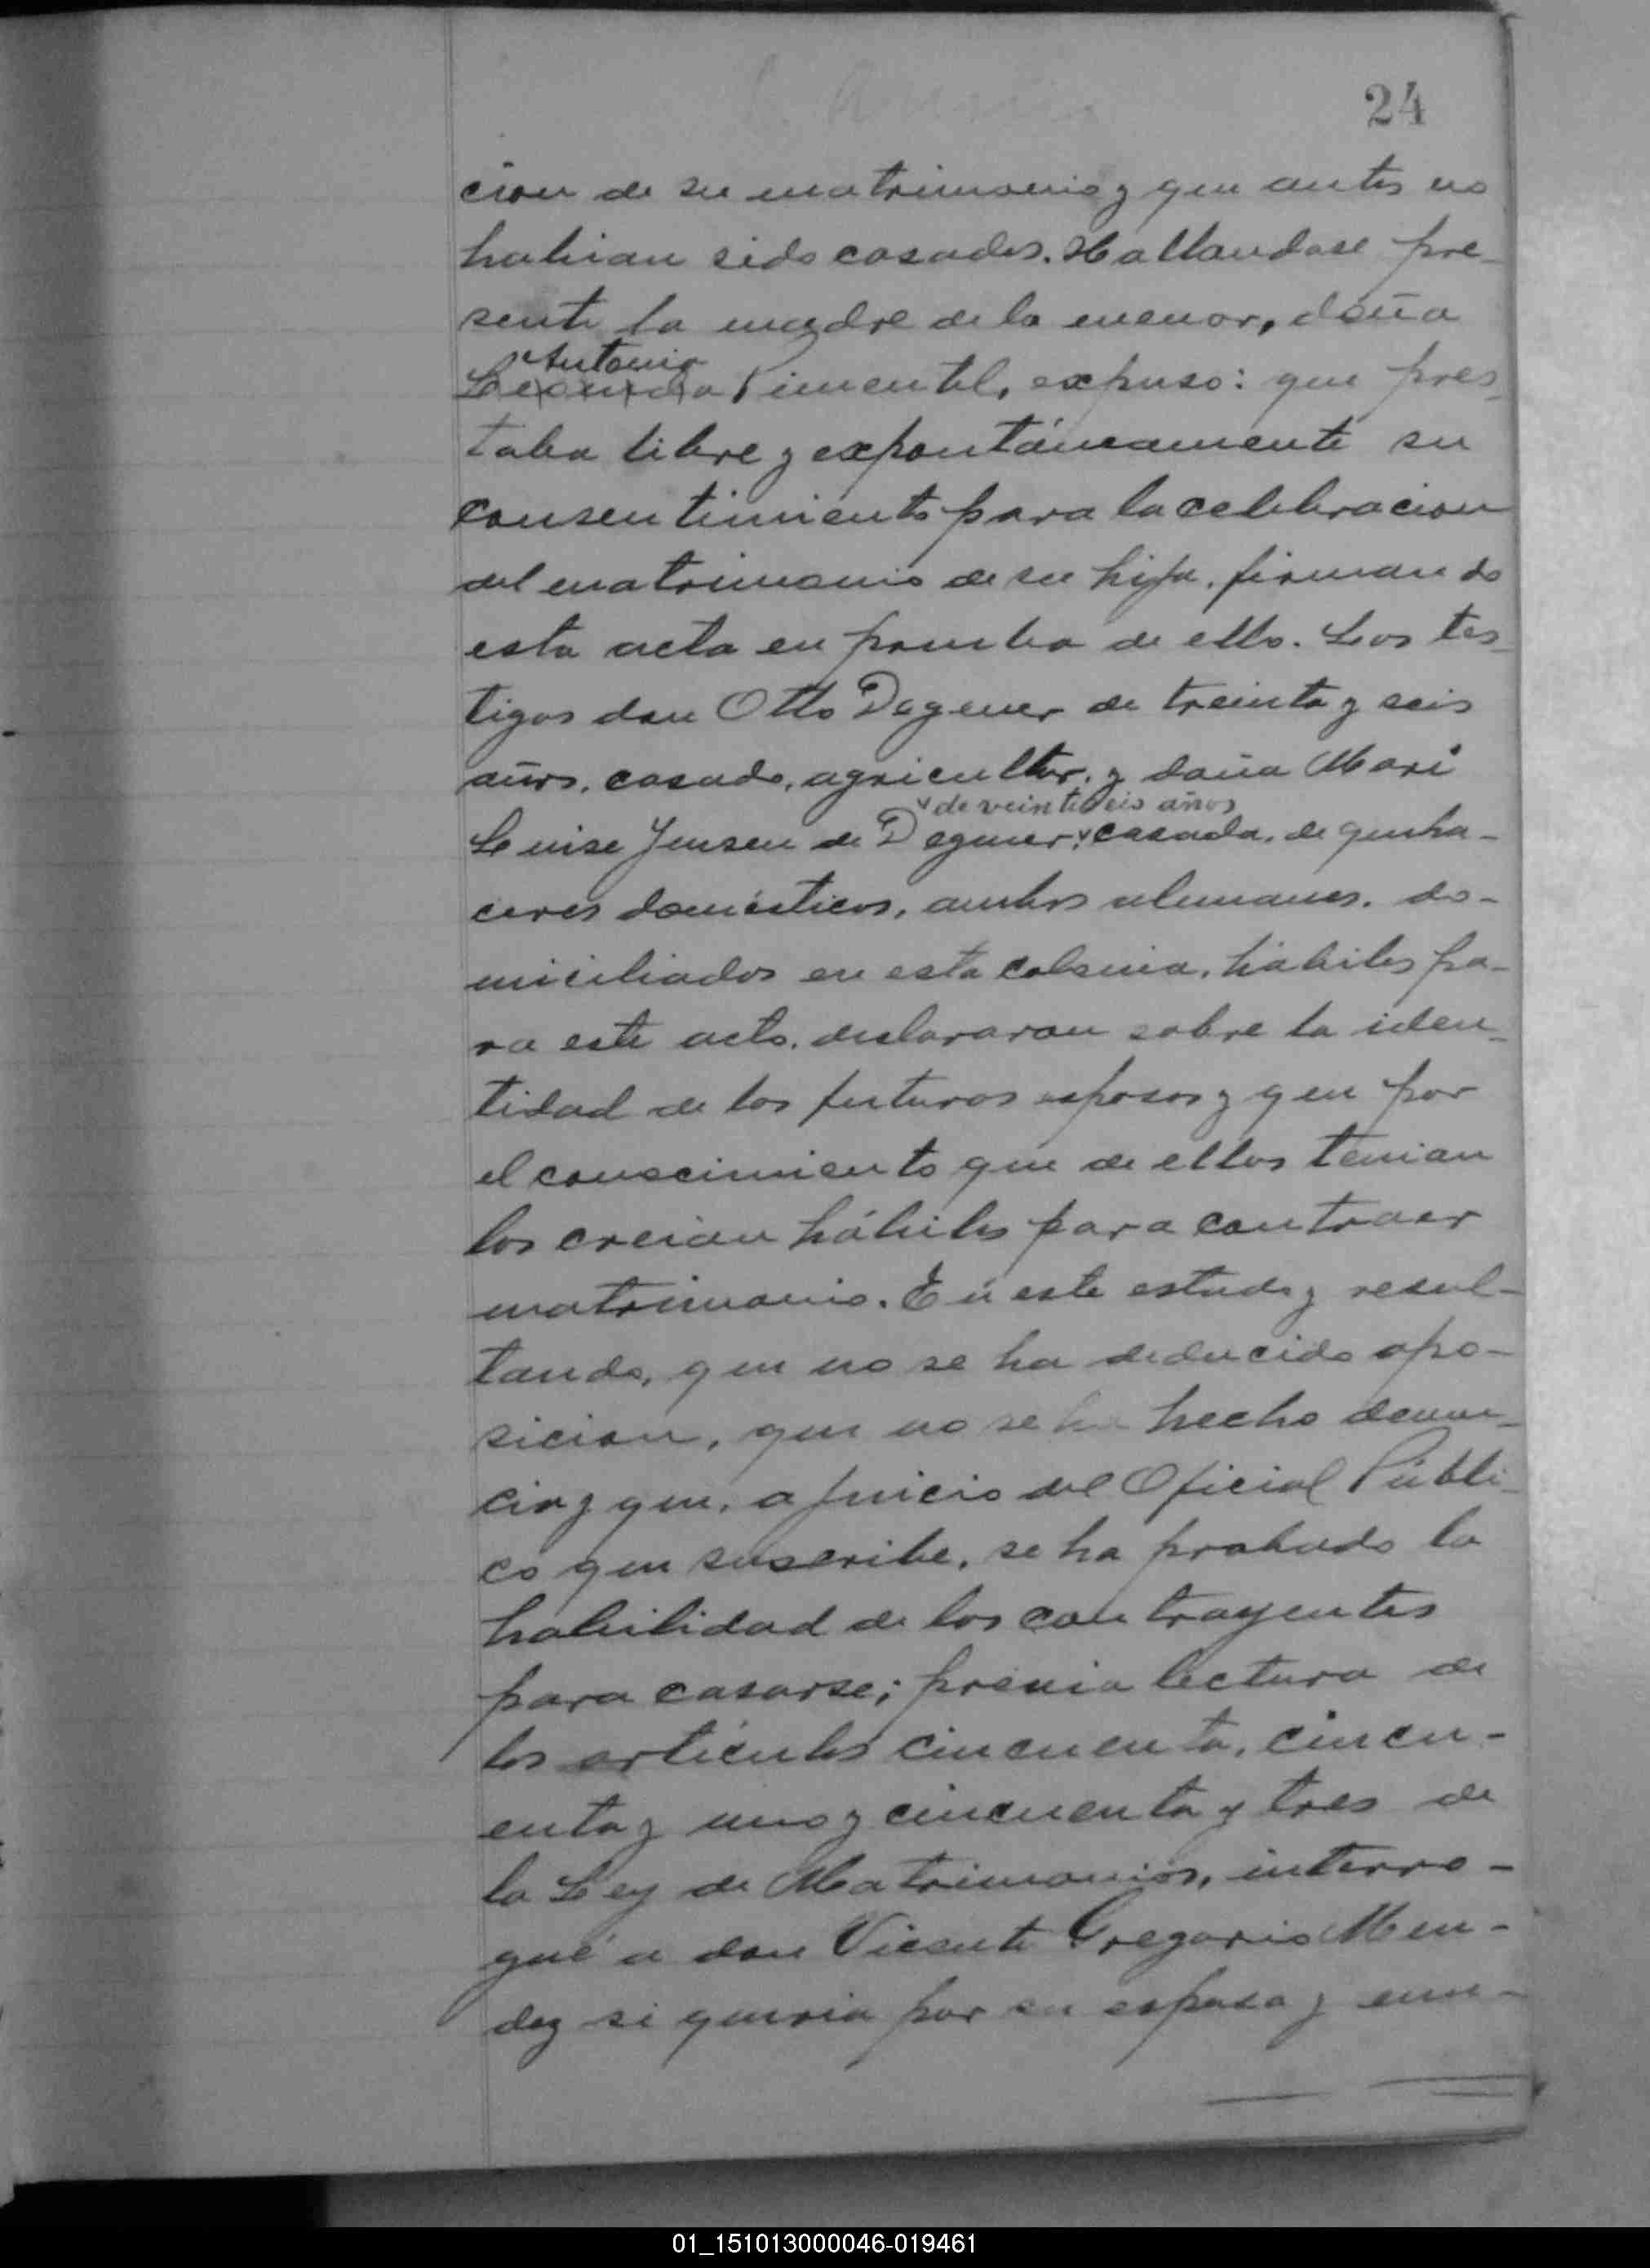 24
cion de su matrimonio y que antes no
habian sido casados. Hallandose pre-
sente la madre de la menor, doña
Antonia
Pimentel, expuso: que pres-
taba libre y expontáneamente su
consentimiento para la celebracion
del matrimonio de su hija, firmando
esta acta en prueba de ello. Los tes-
tigos don Otto Degener de treinta y seis
años, casado, agricultor, y doña Mari
de veintiseis años
Luise Jensen de Degener, casada, de queha-
ceres domésticos, ambos alemanes, do-
miciliados en esta colonia, hábiles pa-
ra este acto, declararon sobre la iden-
tidad de los futuros esposos y que por
el conocimiento que de ellos tenian
los creian hábiles para contraer
matrimonio. En este estado y resul-
tando, que no se ha deducido opo-
sicion, que no se ha hecho denun-
cia y que, a juicio del Oficial Públi-
co que suscribe, se ha probado la
habilidad de los contrayentes
para casarse; previa lectura de
los artículos cincuenta, cincu-
enta y uno y cincuenta y tres de
la Ley de Matrimonios, interro-
gué a don Vicente Gregorio Men-
dez si queria por su esposa y mu-
01_151013000046-019461